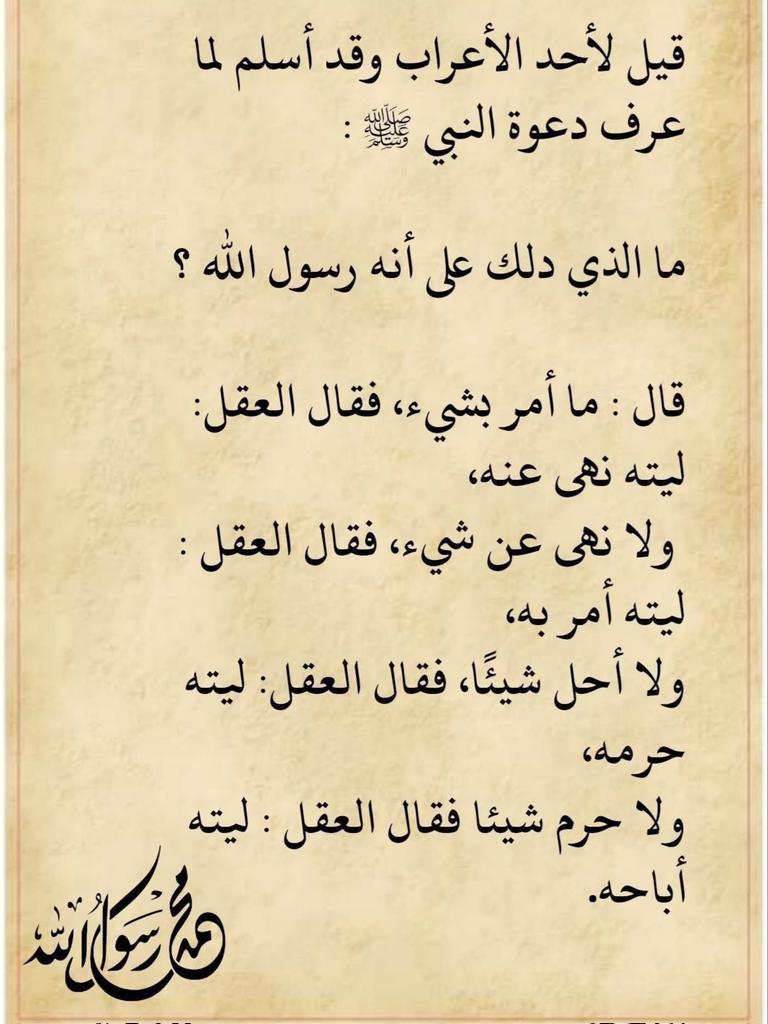 قيل لأحد الأعراب وقد أسلم لما
عرف دعوة النبي ﷺ :
ما الذي دلك على أنه رسول الله ؟
قال : ما أمر بشيء، فقال العقل:
ليته نهى عنه،
ولا نهى عن شيء، فقال العقل :
ليته أمر به،
ولا أحل شيئًا، فقال العقل: ليته
حرمه،
ولا حرم شيئا فقال العقل : ليته
أباحه.
محمد رسول الله